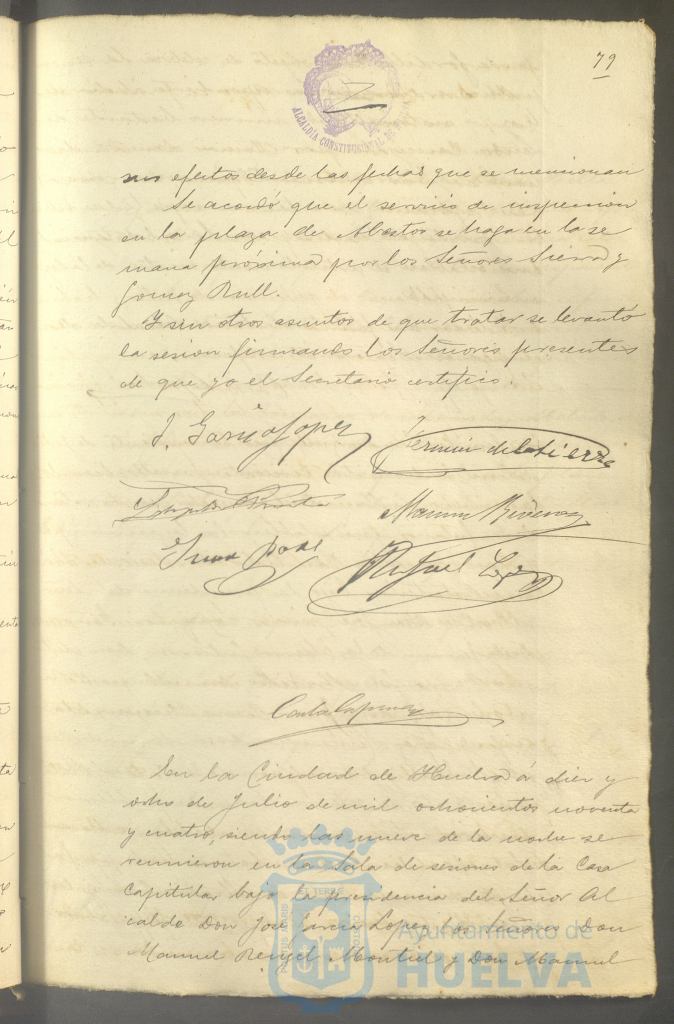 79
ALCALDIA CONSTITUCIONAL DE
sus efectos desde las fechas que se mencionan
Se acordó que el servicio de inspeccion
en la plaza de Abastos se haga en la se
mana próxima por los Señores Sierra y
Gomez Rull.
Y sin otros asuntos de que tratar se levantó
la sesion firmando los Señores presentes
de que yo el Secretario certifico.
J. Garcia Lopez
Fermin de la Sierra
Manuel
Juan
Rafael Lopez
En la Ciudad de Huelva á diez y
ocho de Julio de mil ochocientos noventa
y cuatro, siendo las nueve de la noche se
reunieron en la Sala de sesiones de la Casa
Capitular bajo la presidencia del Señor Al
calde Don José Garcia Lopez los Señores Don
Manuel Rengel Montiel y Don Manuel
Ayuntamiento de
HUELVA